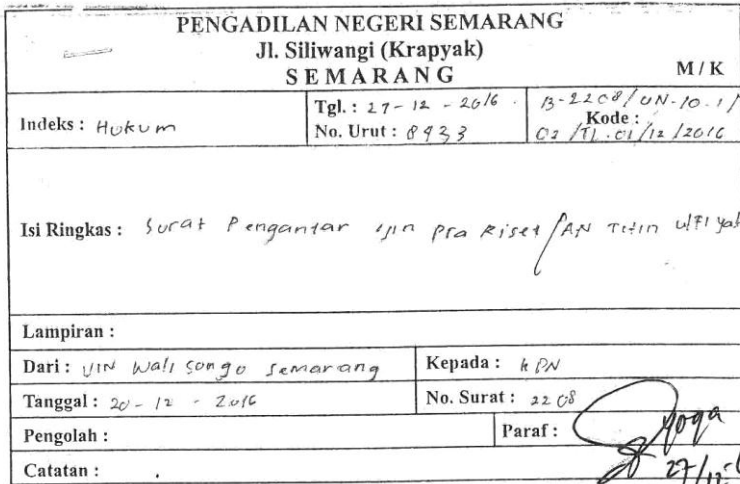 PENGADILAN NEGERI SEMARANG
Jl. Siliwangi (Krapyak)
SEMARANG
M / K
Indeks : Hukum
Tgl. : 27 - 12 - 2016
No. Urut : 8933
B-2208/UN-10.1/
Kode :
02/TL.01/12/2016
Isi Ringkas : Surat Pengantar ijin pra Riset/AN Titin ulfiyah
Lampiran :
Dari : UIN Walisongo Semarang
Kepada : KPN
Tanggal : 20 - 12 - 2016
No. Surat : 2208
Pengolah :
Paraf :
Yoga
Catatan :
27/12